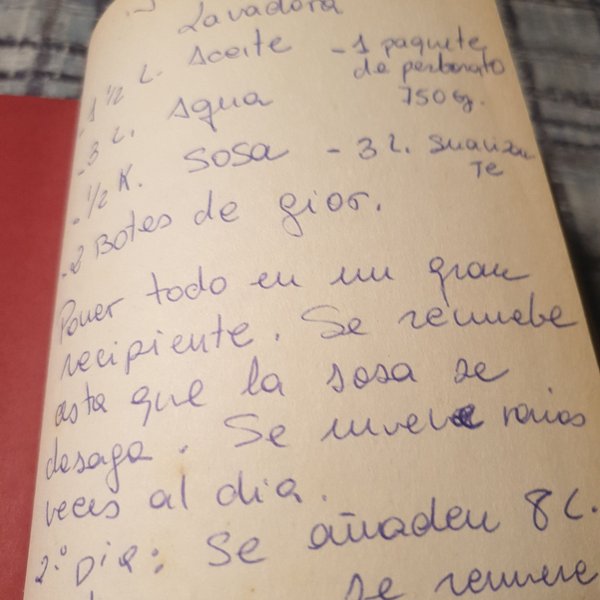 Lavadora
- 1 ½ L. Aceite - 1 paquete
de perborato
750 g.
- 3 L. Agua
- ½ K. SOSA - 3 L. Suavizan
Te
- 2 Botes de gior.
Poner todo en un gran
recipiente. Se remuebe
asta que la sosa se
desaga. Se mueve varias
veces al dia.
2.º Dia: Se añaden 8 L.
se remueve